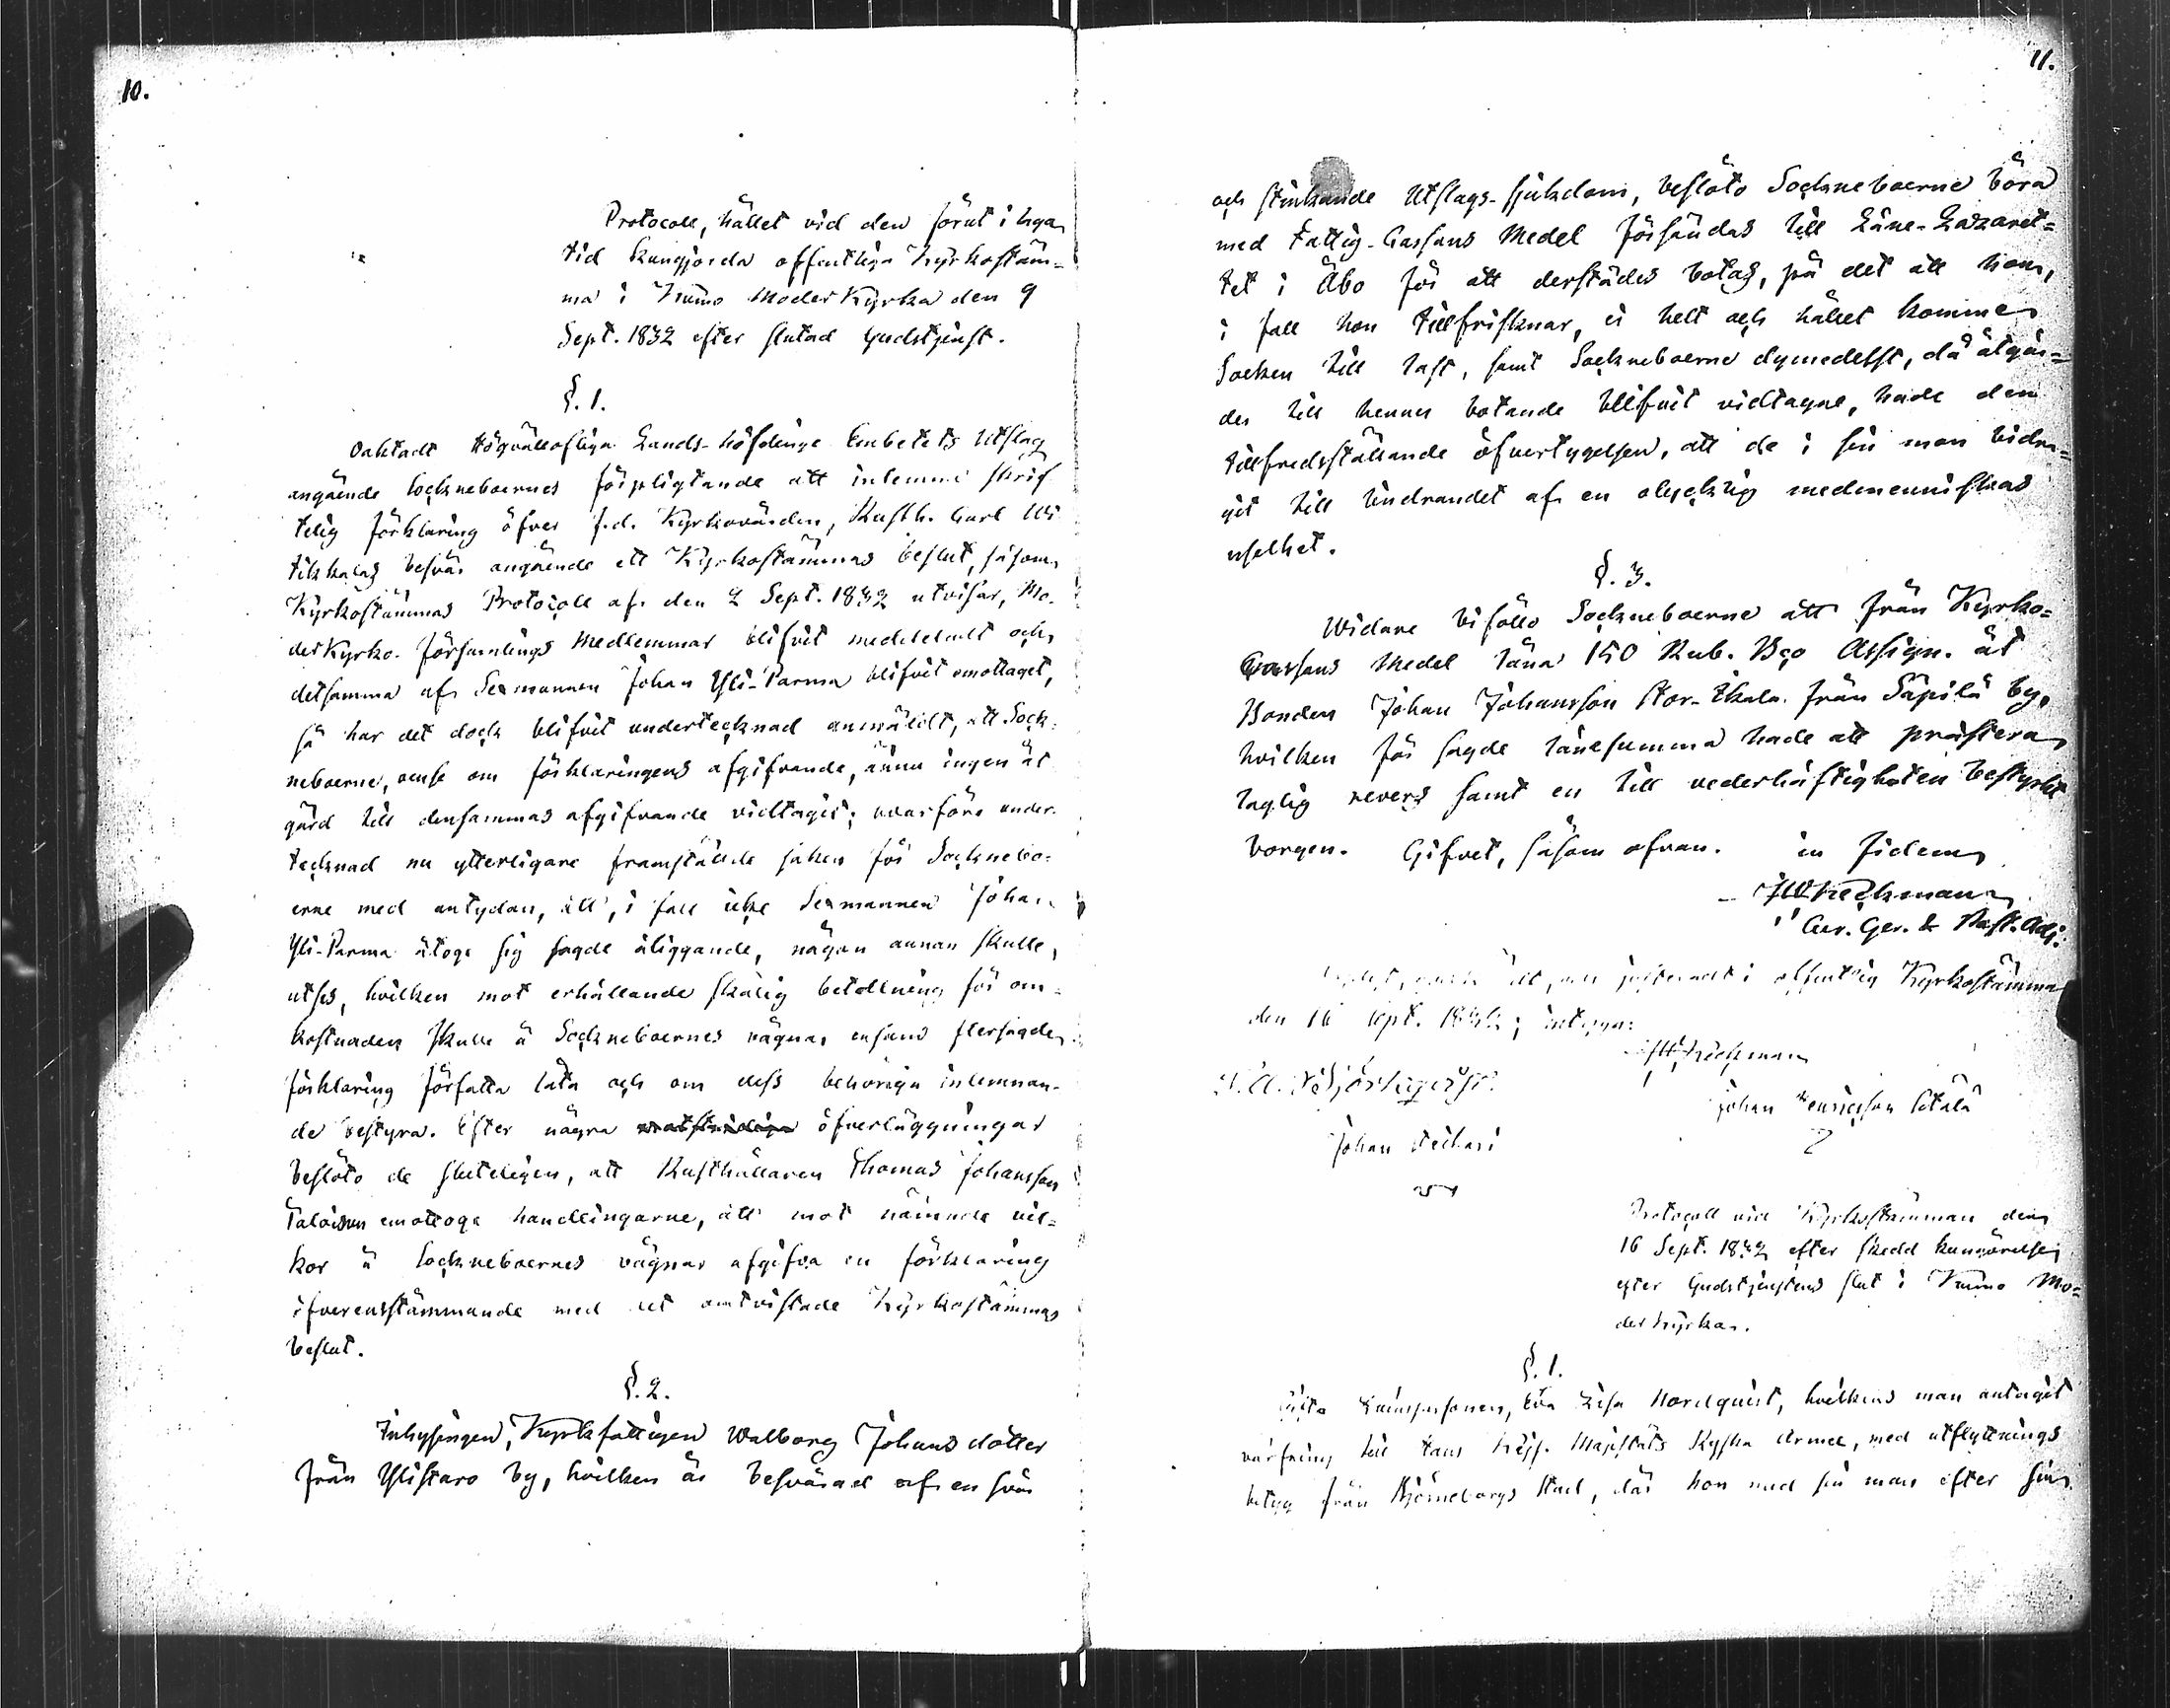 10.
Protocoll, hållet vid den förut i laga
tid kungjorda offentliga Kyrkostäm=
ma i Kumo Moder Kyrka den 9
Sept. 1832 efter slutad Gudstjenst.
§. 1.
Oaktadt Högvällofliga Lands-höfdinge Embetets Utslag
angående Sockneboernes förpligtande att inlemna skrif
telig förklaring öfver f.d. Kyrkovärden, Rusth. Carl Wi
tikkalas besvär angående ett Kyrkostämmas beslut, såsom
Kyrkostämmas Protocoll af den 2 Sept. 1832 utvisar, Mo-
derkyrko-församlings Medlemmar blifvit meddeladt och
detsamma af Sexmannen Johan Yli-Parma blifvit emottaget,
så har det dock blifvit undertecknad anmäldt, att Sock-
neboerne, ense om förklaringens afgifvande, ännu ingen åt
gärd till densammas afgifvande vidtagit; hvarföre under-
tecknad nu ytterligare framställde saken för Sockne bo=
erne med antydan, att, i fall icke Sexmannen Johan
Yli-Parma åtoge sig sagde åliggande, någon annan skulle
utses, hvilken mot erhållande skälig betalning för om=
kostnaden skulle å Sockneboernes vägnar ensam flersagde
förklaring författa låta och om dess behöriga inlemnan-
de bestyra. Efter några öfverläggningar
beslöto de sluteligen, att Rusthållaren Thomas Johansson
Taloisen emottoge handlingarne, att mot nämnde vil=
kor å Sockneboernes vägnar afgifva en förklaring
öfverensstämmande med det omtvistade Kyrkostämmas
beslut.
§. 2.
Inhysingen, Kyrkfattigen Walborg Johansdotter
från Ylistaro by, hvilken är besvärad af en svår
11.
och stinkande Utslags-sjukdom, beslöto Sockneboerne böra
med Fattig-Cassans Medel försändas till Läns-Lazaret=
tet i Åbo för att derstädes botas, på det att hon,
i fall hon tillfrisknar, ej helt och hållet komme
Socken till last, samt Sockneboerne dymedelst, då åtgär=
der till hennes botande blifvit vidtagne, hade den
tillfredsställande öfvertygelsen, att de i sin mon bidra=
git till lindrandet af en olycklig medmenniskas
uselhet.
§. 3.
Widare biföllo Sockneboerne att från Kyrko=
Cassans Medel låna 150 Rub. Bco Assign. åt
Bonden Johan Johansson Stor-Ikala från Säpilä by,
hvilken för sagde lånesumma hade att præstera
laglig revers samt en till vederhäftigheten bestyrkt
borgen. Gifvet, såsom ofvan. in fidem
Cur. Ger. & Past. Adj.
justeradt i offentlig Kyrkostämma
den 16 Sept. 1832; intyga:
Johan Henricsson
Johan
Protocoll vid Kyrkostämman den
16 Sept. 1832 efter skedd kungörelse
efter Gudstjenstens slut i Kumo Mo=
derkyrka.
§. 1.
Eva Lisa Nordquist, hvilkens man antagit
värfning till Hans Kejs. Majestäts Ryska Armee, med utflyttnings
betyg från Björneborgs stad, där hon med sin man efter sin